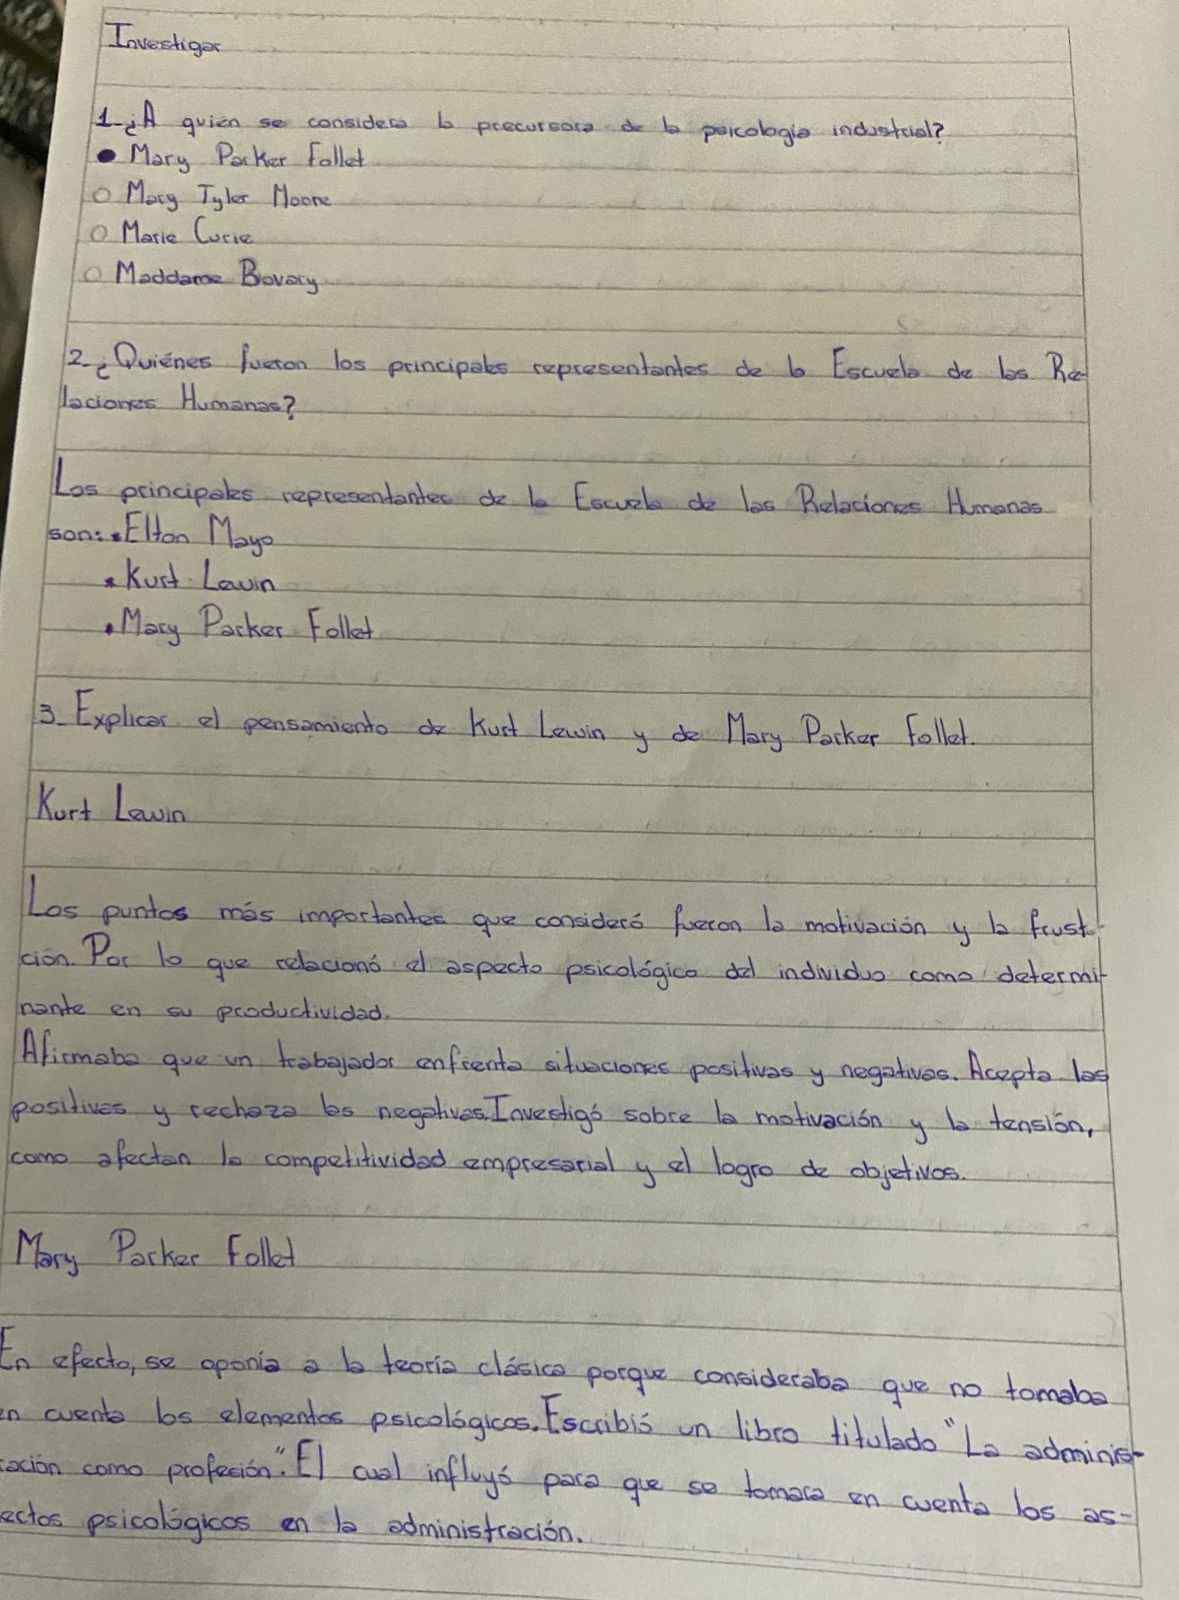 Investigar
1-¿A quién se considera la precursora de la psicología industrial?
• Mary Parker Follet
○ Mary Tyler Moore
○ Marie Curie
○ Maddame Bovary
2-¿Quiénes fueron los principales representantes de la Escuela de las Re-
laciones Humanas?
Los principales representantes de la Escuela de las Relaciones Humanas
son: • Elton Mayo
• Kurt Lewin
• Mary Parker Follet
3- Explicar el pensamiento de Kurt Lewin y de Mary Parker Follet.
Kurt Lewin
Los puntos más importantes que consideró fueron la motivación y la frust-
ción. Por lo que relacionó el aspecto psicológico del individuo como determi-
nante en su productividad.
Afirmaba que un trabajador enfrenta situaciones positivas y negativas. Acepta las
positivas y rechaza las negativas. Investigó sobre la motivación y la tensión,
como afectan la competitividad empresarial y el logro de objetivos.
Mary Parker Follet
En efecto, se oponía a la teoría clásica porque consideraba que no tomaba
en cuenta los elementos psicológicos. Escribió un libro titulado "La administ-
ración como profesión". El cual influyó para que se tomara en cuenta los as-
ectos psicológicos en la administración.